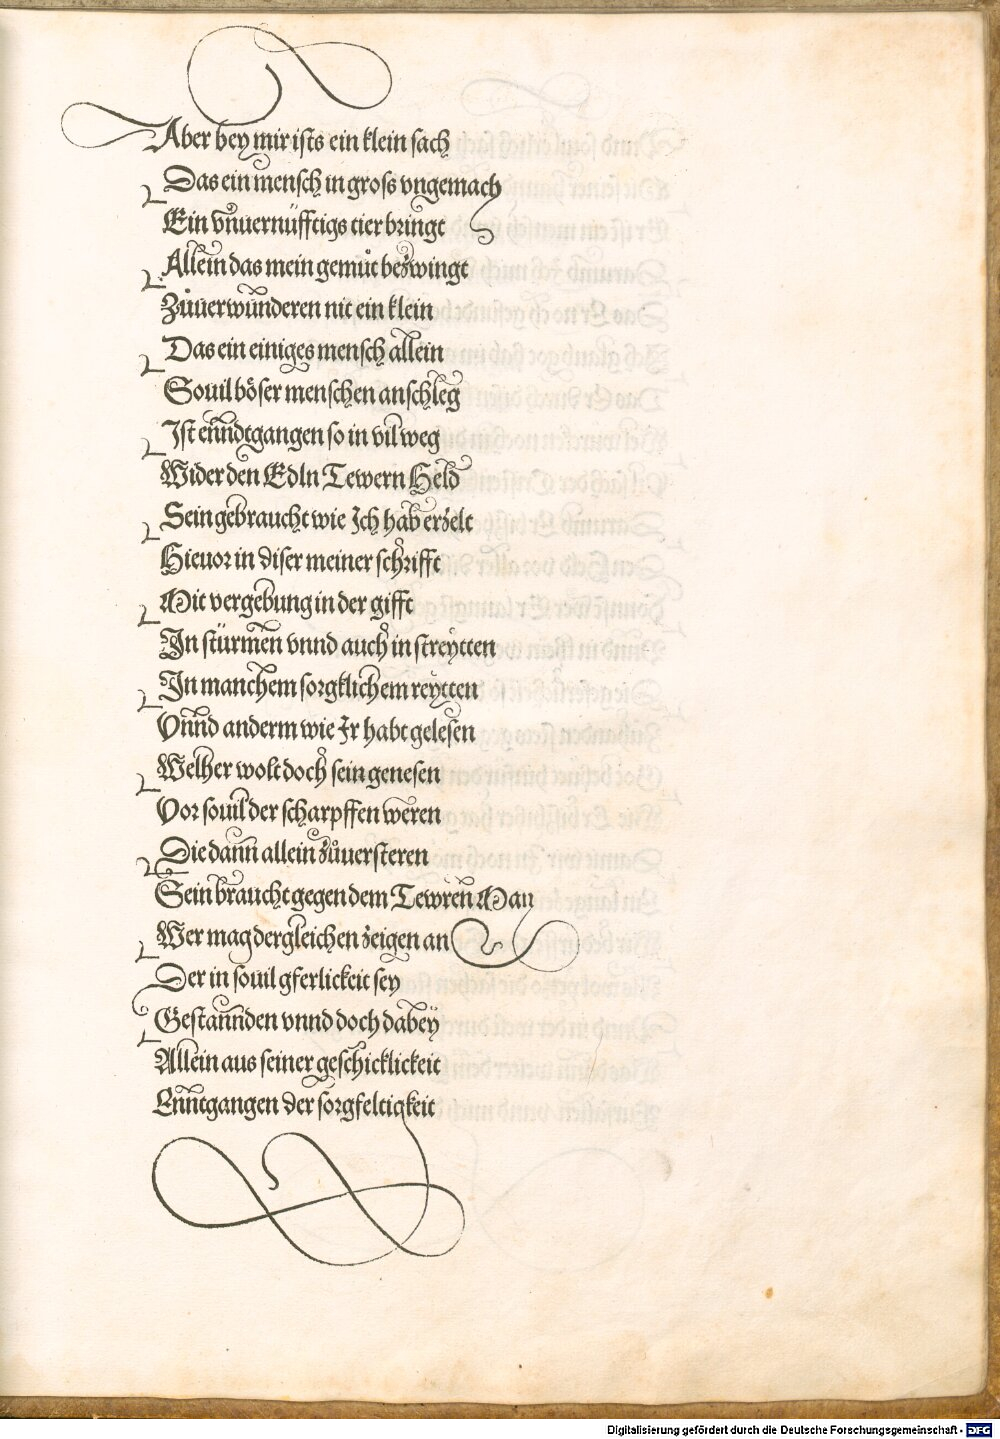 Aber bey mir ists ein klein sach
Das ein mensch in gross vngemach
Ein vnuernüfftigs tier bringt
Allein das mein gemůt bezwingt
Zůuerwunderen nit ein klein
Das ein einiges mensch allein
Souil böser menschen anschleg
Ist enndtgangen so in vil weg
Wider den Edln Tewern Held
Sein gebraucht wie Ich hab erzelt
Hieuor in diser meiner schrifft
Mit vergebung in der gifft
In stürmen vnnd auch in streytten
In manchem sorgklichem reytten
Vnnd anderm wie Ir habt gelesen
Welher wolt doch sein genesen
Vor souil der scharpffen weren
Die dann allein zůuersteren
Sein braucht gegen dem Tewren Man
Wer mag dergleichen zeigen an
Der in souil gferlickeit sey
Gestannden vnnd doch dabeÿ
Allein aus seiner geschicklickeit
Enntgangen der sorgfeltigkeit
Digitalisierung gefördert durch die Deutsche Forschungsgemeinschaft - DFG